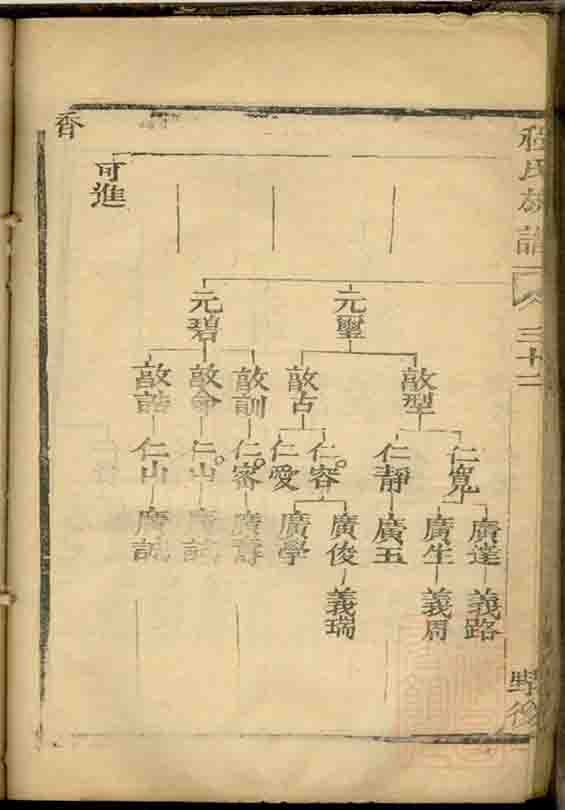 程氏族譜
三十二
香
可進
元璽
元碧
敦型
敦占
敦訓
敦命
敦誥
仁寬
仁靜
仁容
仁愛
仁審
仁山
仁山
廣達
廣生
廣玉
廣俊
廣學
廣壽
廣誠
義路
義周
義瑞